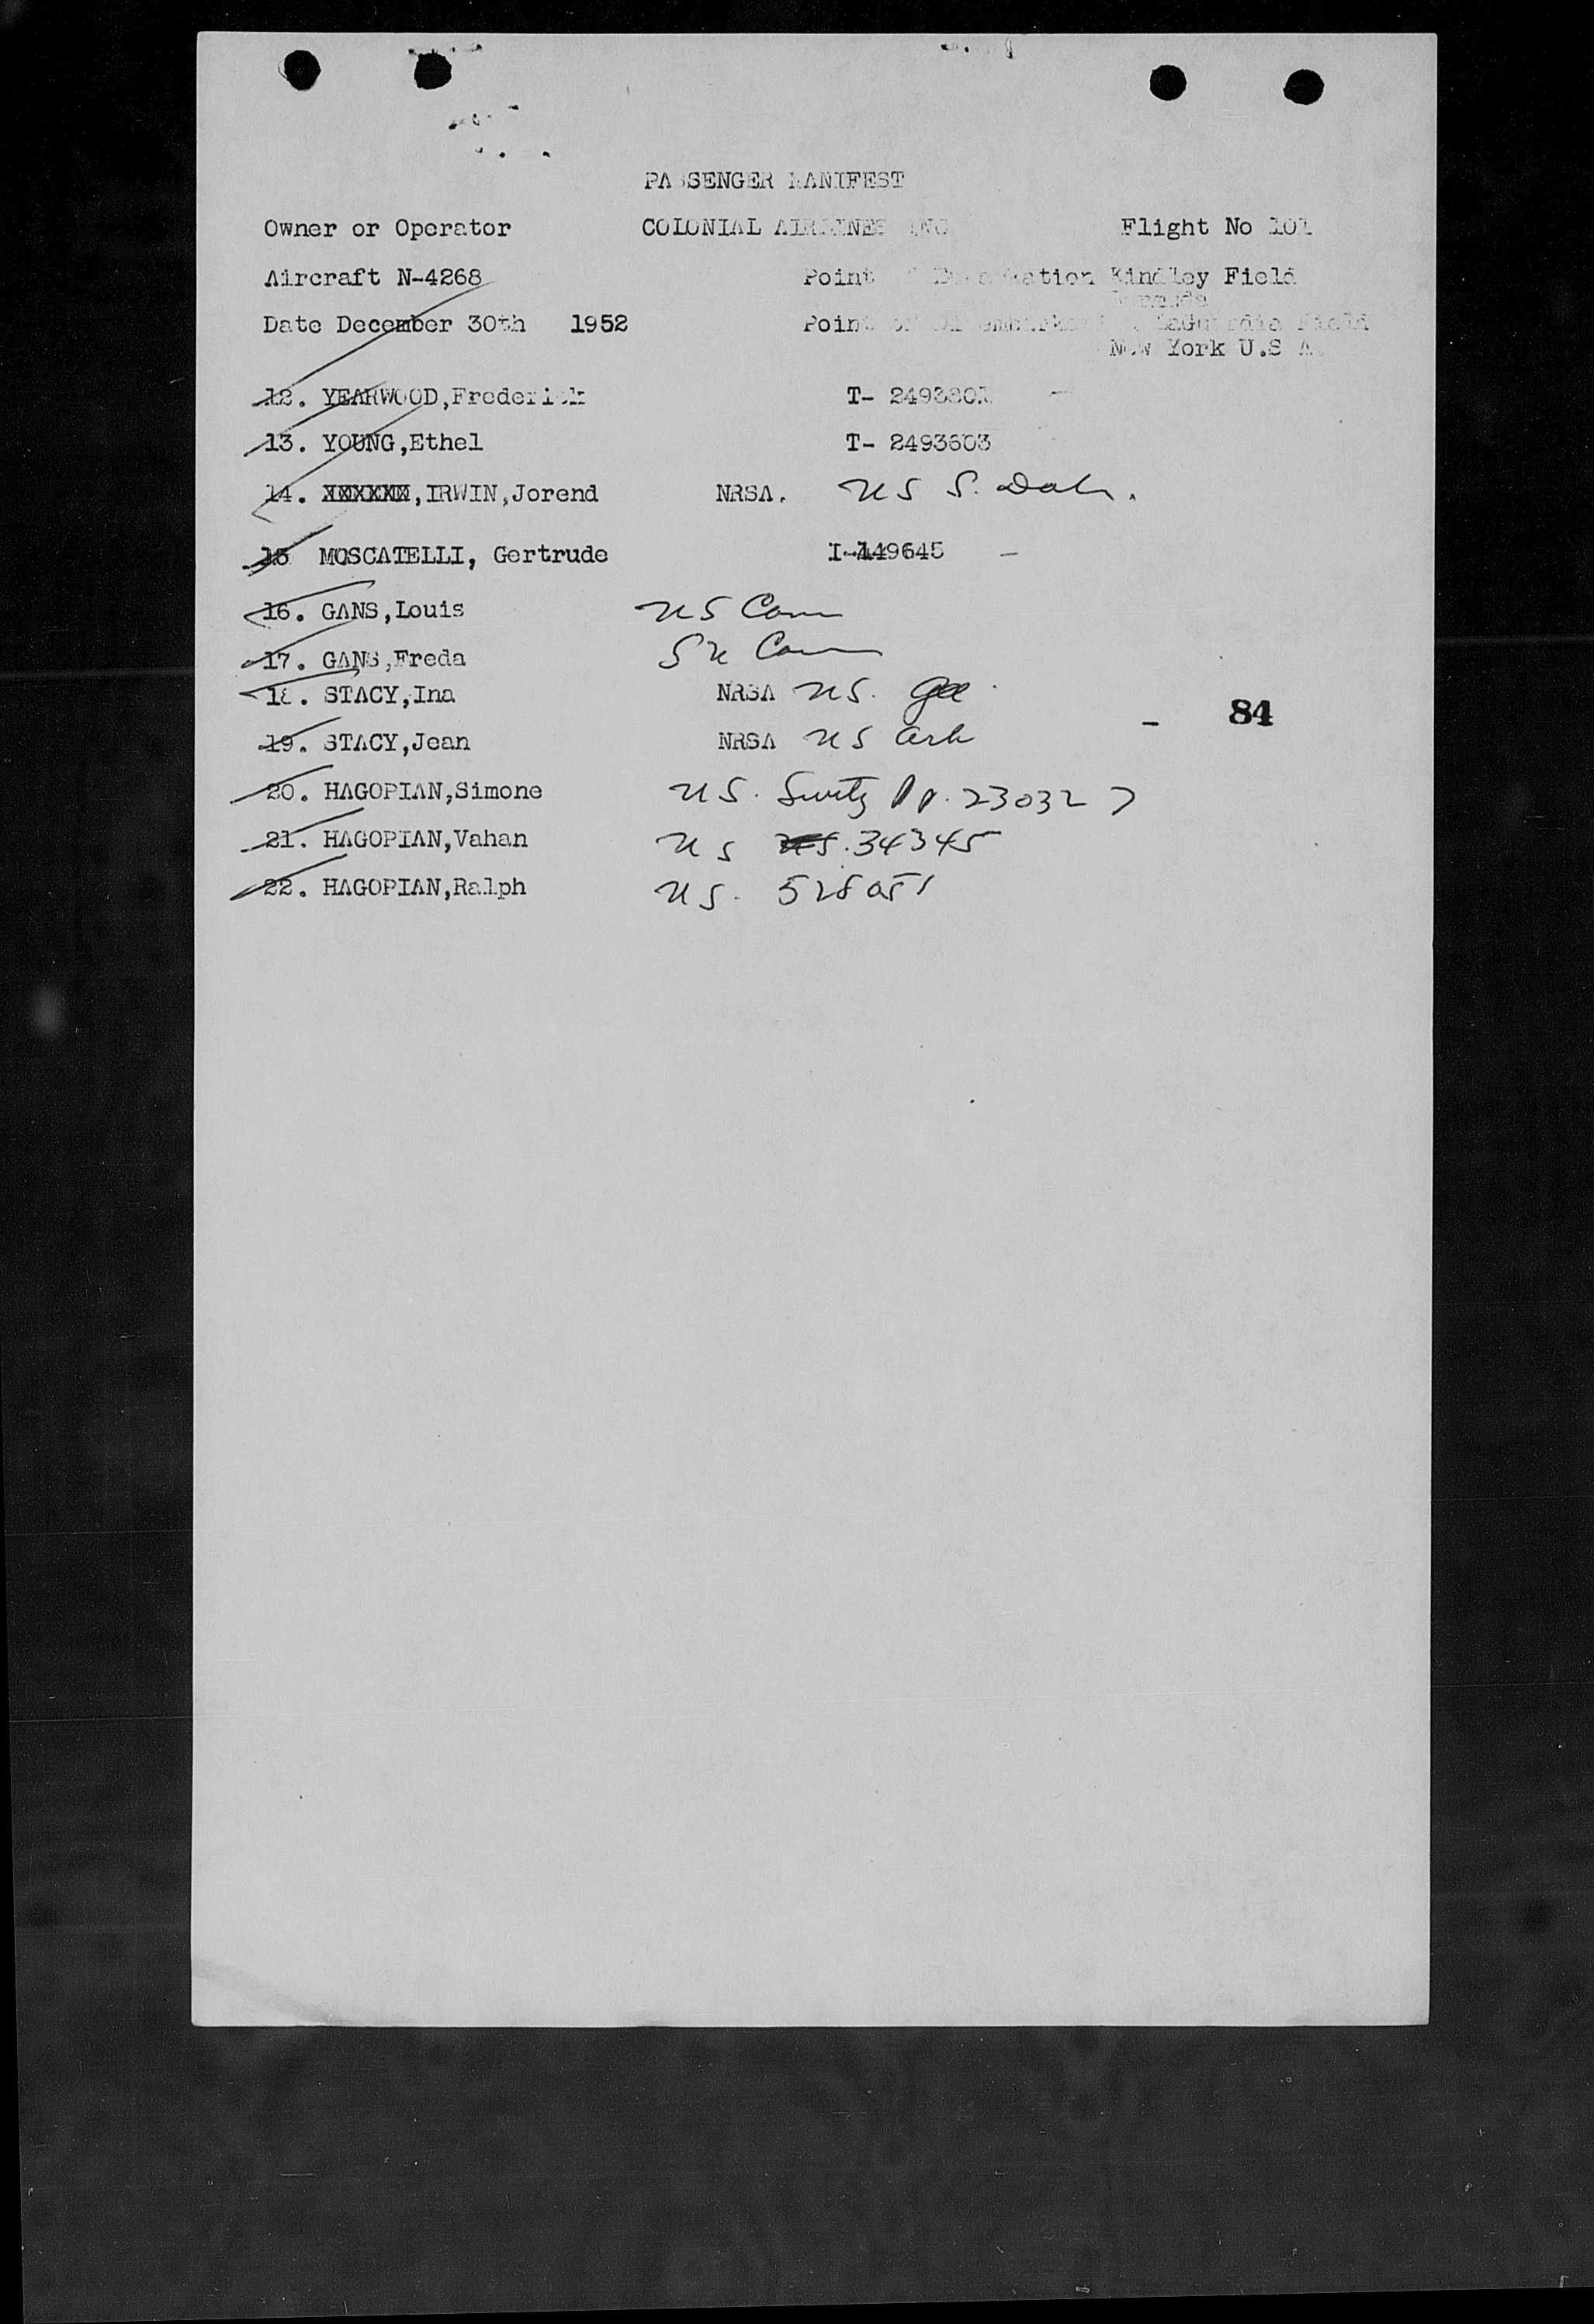 PASSENGER MANIFEST
Owner or Operator COLONIAL AIRLINES INC Flight No 101
Aircraft N-4268 Point of Embarkation Kindley Field
Bermuda
Date December 30th 1952 Point of Disembarkation LaGuardia Field
New York U.S A.
12. YEARWOOD,Frederick T- 2493801
13. YOUNG,Ethel T- 2493603
14. XXXXXX,IRWIN,Jorend NRSA. US S. Dak.
15 MOSCATELLI, Gertrude I-449645
16. GANS,Louis US Conn
17. GANS,Freda Conn
18. STACY,Ina NRSA US.
19. STACY,Jean NRSA US Ark
84
20. HAGOPIAN,Simone US. Switz Pp. 230327
21. HAGOPIAN,Vahan US 34345
22. HAGOPIAN,Ralph US. 528051